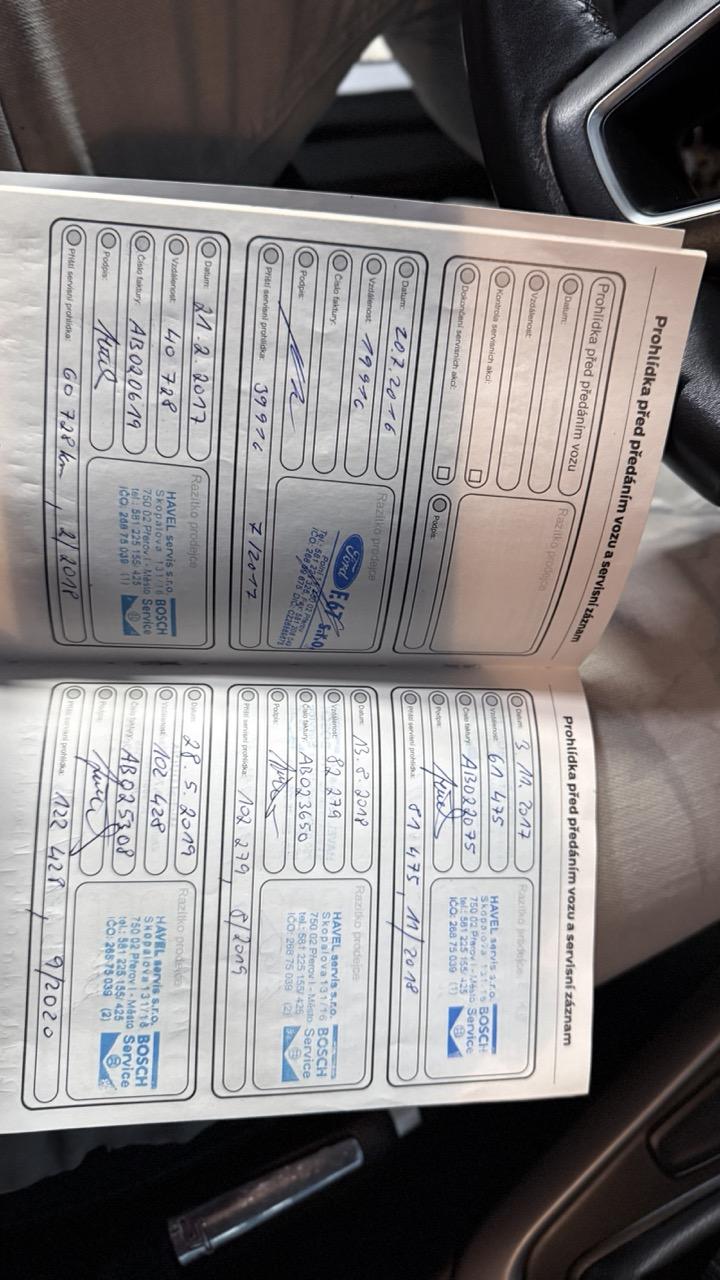 Prohlídka před předáním vozu a servisní záznam
Prohlídka před předáním vozu
Datum:
Vzdálenost:
Kontrola servisních akcí:
Dokončení servisních akcí:
Razítko prodejce
Podpis:
Datum: 20.7.2016
Vzdálenost: 19976
Číslo faktury:
Podpis:
Příští servisní prohlídka: 39976 7/2017
Razítko prodejce
Ford
Datum: 21.2.2017
Vzdálenost: 40 728
Číslo faktury: AB020619
Podpis:
Příští servisní prohlídka: 60 728 km, 2/2018
Razítko prodejce
HAVEL servis s.r.o.
Skopalova 131/16 BOSCH
750 02 Přerov I - Město Service
tel.: 581 225 155/ 425
IČO: 268 75 039 (1)
Prohlídka před předáním vozu a servisní záznam
Datum: 3.11.2017
Vzdálenost: 61 475
Číslo faktury: AB022075
Podpis:
Příští servisní prohlídka: 81 475, 11/2018
Razítko prodejce
HAVEL servis s.r.o.
Skopalova 131/16 BOSCH
750 02 Přerov I - Město Service
tel.: 581 225 155/ 425
IČO: 268 75 039 (1)
Datum: 13.8.2018
Vzdálenost: 82 279
Číslo faktury: AB023650
Podpis:
Příští servisní prohlídka: 102 279, 8/2019
Razítko prodejce
HAVEL servis s.r.o.
Skopalova 131/16 BOSCH
750 02 Přerov I - Město Service
tel.: 581 225 155/ 425
IČO: 268 75 039 (2)
Datum: 28.5.2019
Vzdálenost: 102 428
Číslo faktury: AB025308
Podpis:
Příští servisní prohlídka: 122 428, 9/2020
Razítko prodejce
HAVEL servis s.r.o.
Skopalova 131/16 BOSCH
750 02 Přerov I - Město Service
tel.: 581 225 155/ 425
IČO: 268 75 039 (2)